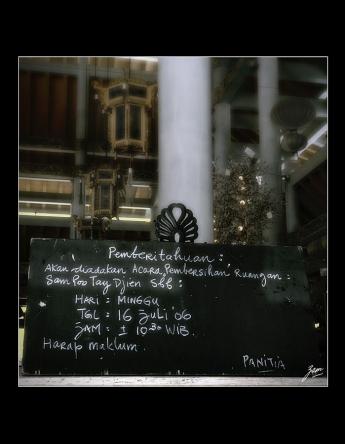 Pemberitahuan :
Akan diadakan Acara "Pembersihan" Ruangan :
Sam Poo Tay Djien Sbb :
HARI : MINGGU
TGL : 16 Juli '06
JAM : ± 10.30 WIB.
Harap maklum.
PANITIA